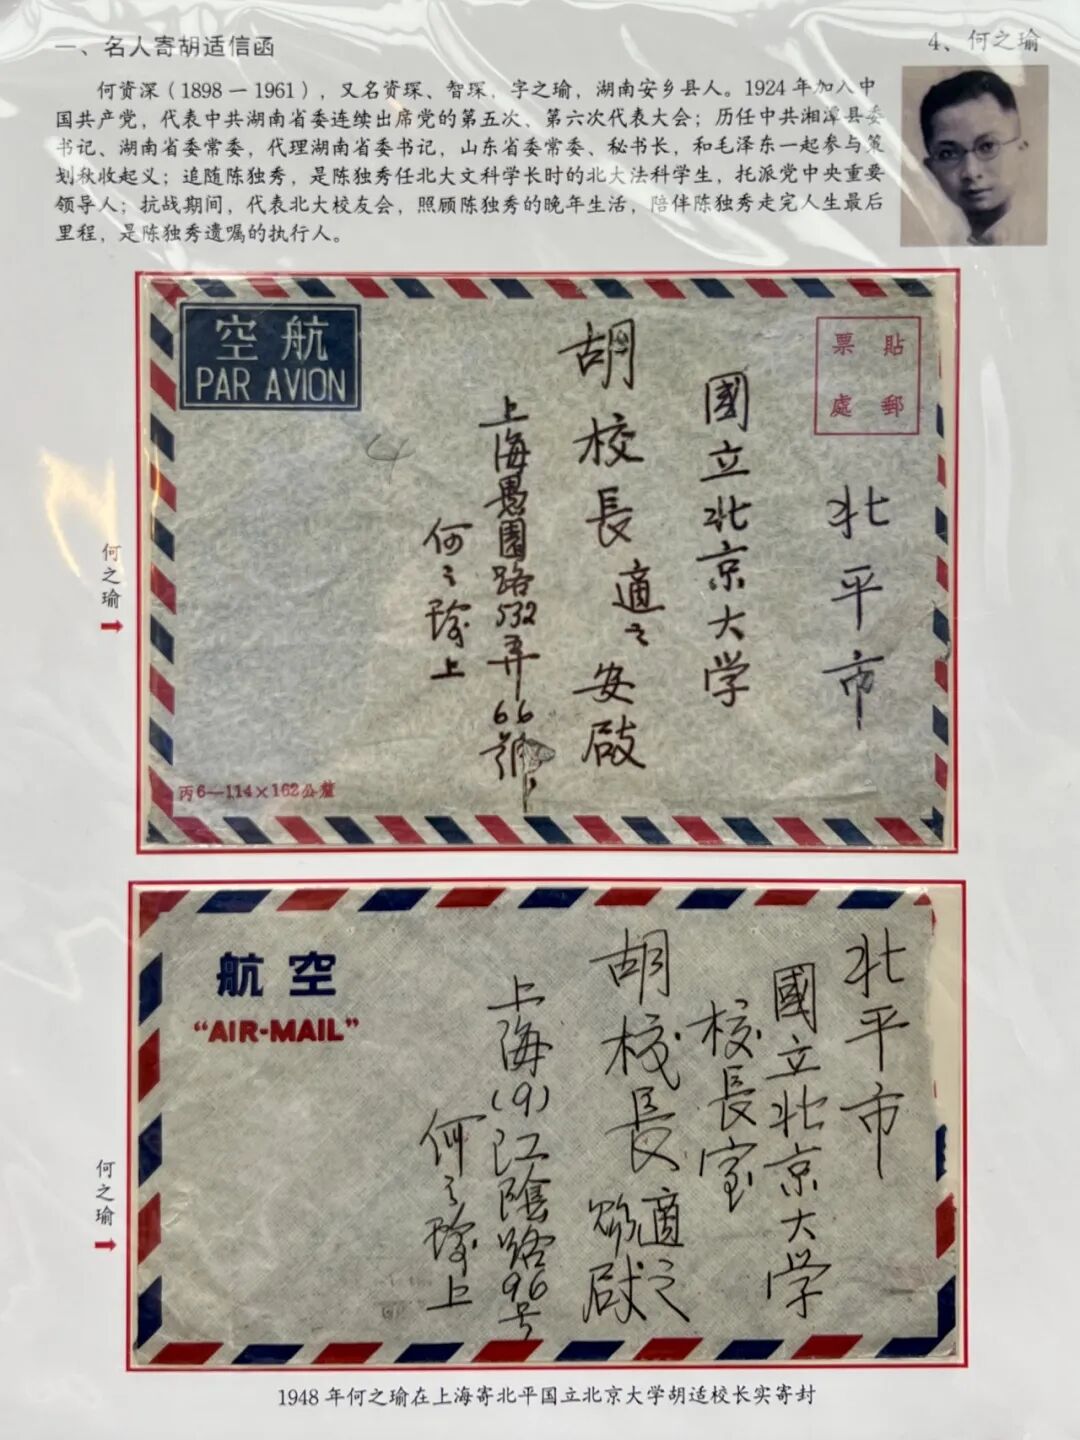 一、名人寄胡适信函
4、何之瑜
何资深（1898—1961），又名资琛、智琛，字之瑜，湖南安乡县人。1924年加入中
国共产党，代表中共湖南省委连续出席党的第五次、第六次代表大会；历任中共湘潭县委
书记、湖南省委常委，代理湖南省委书记，山东省委常委、秘书长，和毛泽东一起参与策
划秋收起义；追随陈独秀，是陈独秀任北大文科学长时的北大法科学生，托派党中央重要
领导人；抗战期间，代表北大校友会，照顾陈独秀的晚年生活，陪伴陈独秀走完人生最后
里程，是陈独秀遗嘱的执行人。
空航
PAR AVION
貼郵
票處
北平市
國立北京大学
胡校長適之安啟
上海愚園路532弄66號
何之瑜上
4
丙6—114×162公釐
何之瑜
航空
"AIR-MAIL"
北平市
國立北京大学
校長室
胡校長適之
上海(9)江陰路96号
何之瑜上
何之瑜
1948年何之瑜在上海寄北平国立北京大学胡适校长实寄封